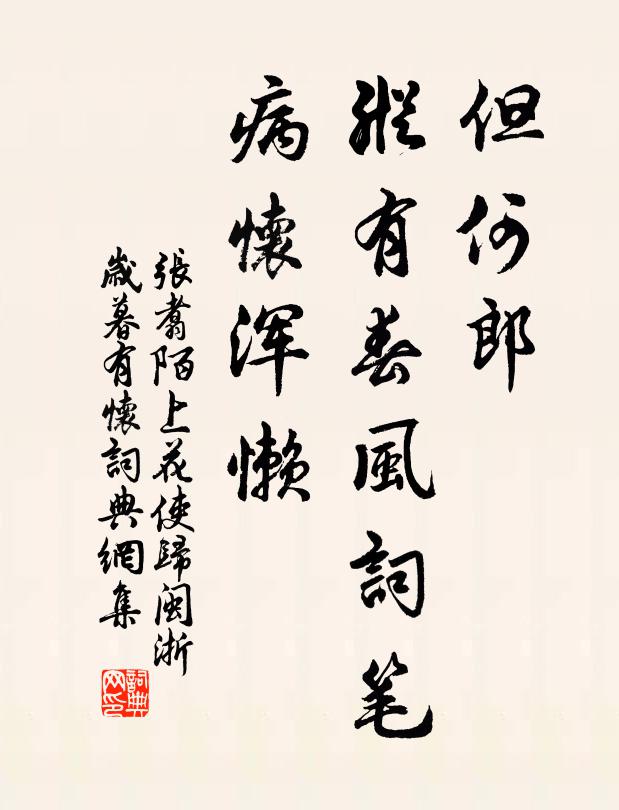 但何郎
縱有春風詞笔
病懷浑懒
張翥陌上花使歸閩浙
歲暮有懷詞典網集
詞典网印